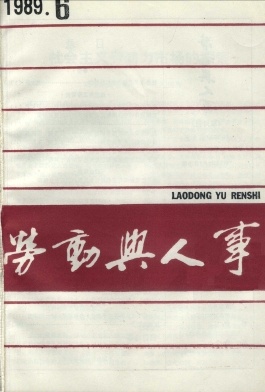 1989.6
LAODONG YU RENSHI
勞動與人事